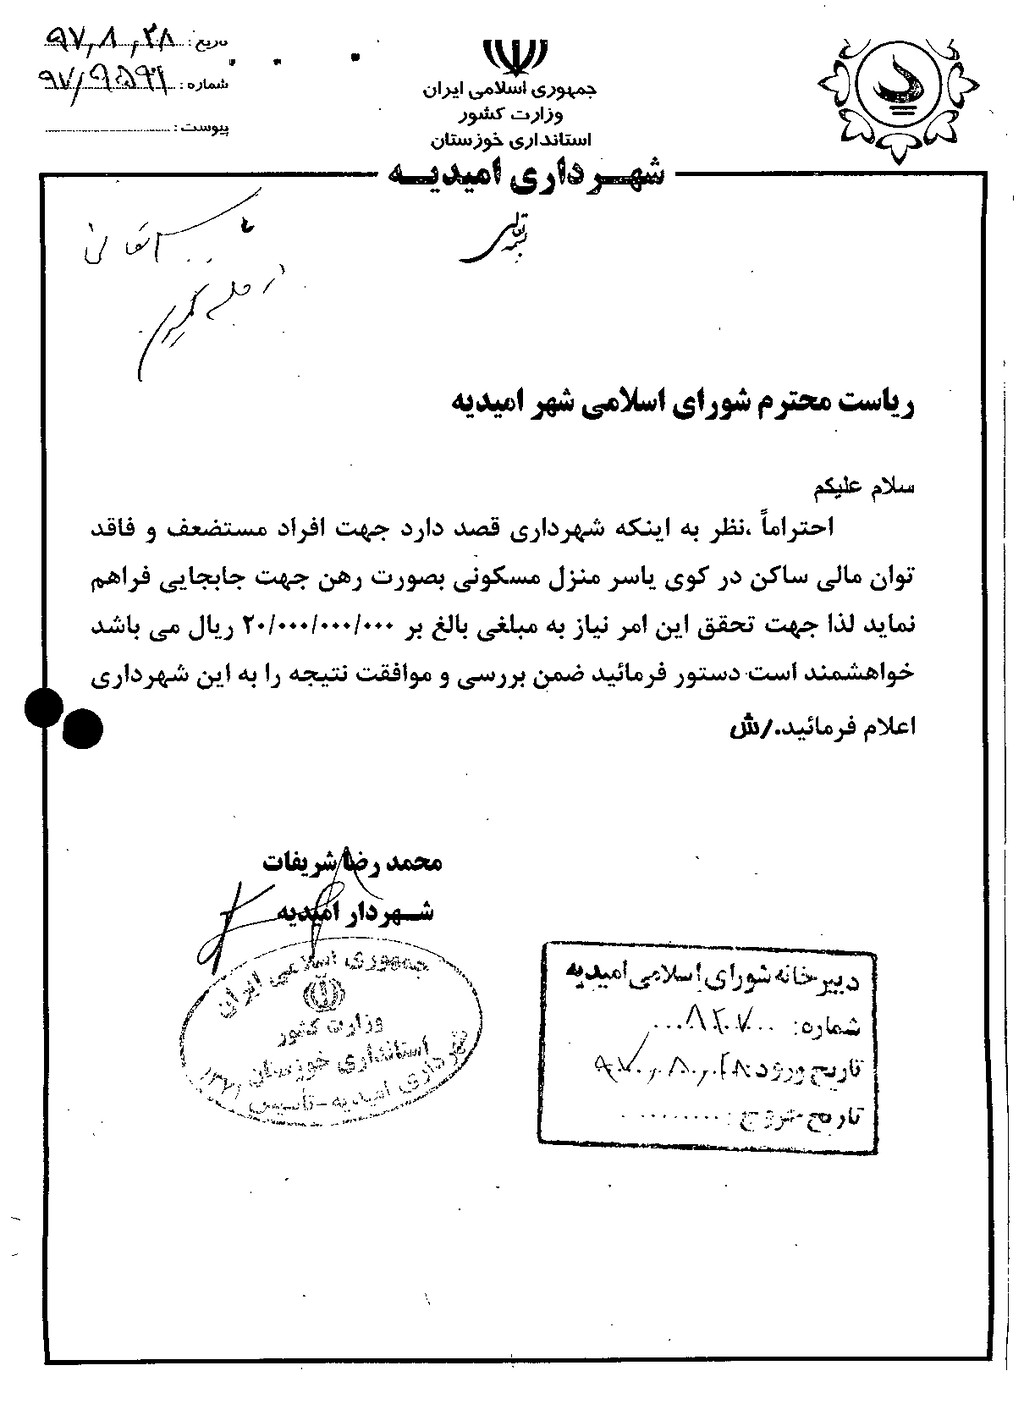 تاریخ: ۹۷،۸،۲۸
شماره: ۹۷/۹۵۹۱
پیوست:
جمهوری اسلامی ایران
وزارت کشور
استانداری خوزستان
شهرداری امیدیه
بسمه تعالی
ریاست محترم شورای اسلامی شهر امیدیه
سلام علیکم
احتراماً ،نظر به اینکه شهرداری قصد دارد جهت افراد مستضعف و فاقد
توان مالی ساکن در کوی یاسر منزل مسکونی بصورت رهن جهت جابجایی فراهم
نماید لذا جهت تحقق این امر نیاز به مبلغی بالغ بر ۲۰/۰۰۰/۰۰۰/۰۰۰ ریال می باشد
خواهشمند است دستور فرمائید ضمن بررسی و موافقت نتیجه را به این شهرداری
اعلام فرمائید./ش
محمد رضا شریفات
شهردار امیدیه
جمهوری اسلامی ایران
وزارت کشور
استانداری خوزستان
شهرداری امیدیه-تأسیس
دبیرخانه شورای اسلامی امیدیه
شماره: ۸۲۰۷
تاریخ ورود ۹۷،۸،۲۸
تاریخ خروج: